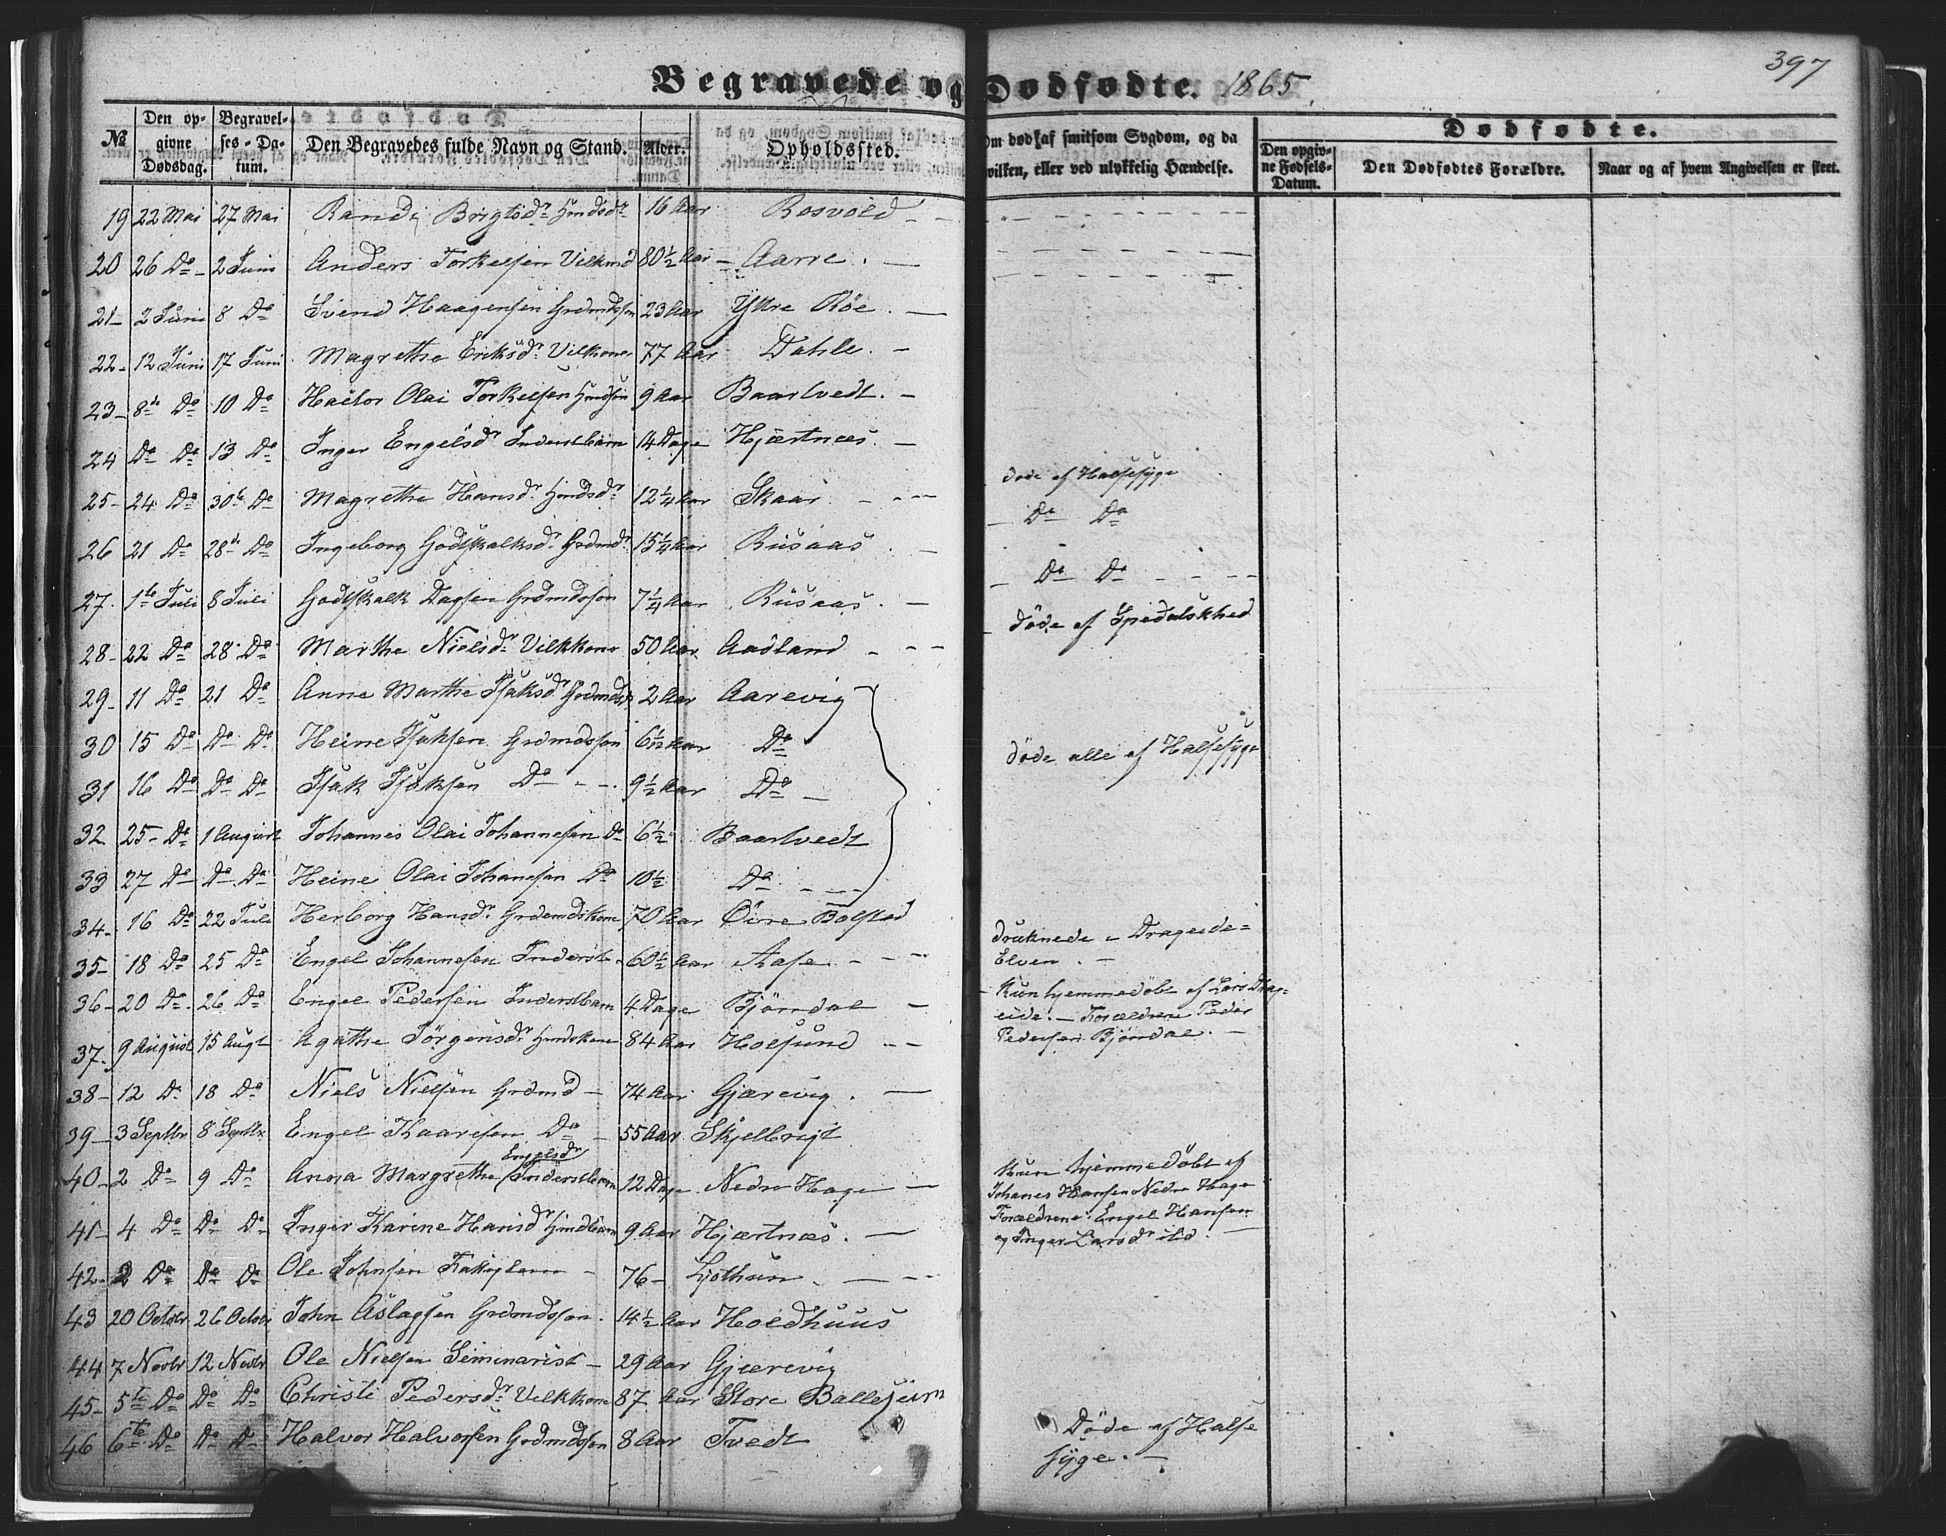 Begravede og Dødfødte. 1865.
397
№
Den opgivne Dødsdag.
Begravelses-Datum.
Den Begravedes fulde Navn og Stand.
Alder.
Opholdssted.
Om død af smitsom Sygdom, og da
hvilken, eller ved ulykkelig Hændelse.
Dødfødte.
Den opgivne Fødsels-Datum.
Den Dødfødtes Forældre.
Naar og af hvem Angivelsen er skeet.
19 22 Mai 27 Mai Randi Brigtsdr 16 Aar Rosvold
20 26 Do 2 Juni Anders Torkelsen Vilkmd 80½ Aar Aarre
21 2 Juni 8 Do Svend Haagensen Grdmdssøn 23 Aar Yttre Röe
22 12 Juni 17 Juni Magrethe Eriksdr Vilkkone 77 Aar Dahle
23 8de Do 10 Do Hactor Olai Torkelsen Hmdssøn 9 Aar Baartvedt
24 Do Do 13 Do Inger Engelsdr Inderstbarn 14 Dage Hjærtnæs
25 24 Do 30te Do Magrethe Hansdr Hmdsdr 12¼ Aar Skaar døde af Halsesyge
26 21 Do 28de Do Ingeborg Godtskalksdr Grdmdr 15¼ Aar Rusaas Do Do
27 1te Juli 8 Juli Godtskalk Dagsen Grdmdssøn 7¼ Aar Rusaas Do Do
28 22 Do 28 Do Marthe Nielsdr Vilkkone 50 Aar Aadland døde af Spedalskhed
29 11 Do 21 Do Anne Marthe Isaksdr Grdmdsdr 2 Aar Aarevig
30 15 Do Do Do Heine Isaksen Grdmdssøn 6½ Aar Do døde alle af Halsesyge
31 16 Do Do Do Isak Isaksen Do 9½ Aar Do
32 25 Do 1 August Johannes Olai Johannesen Do 6½ Baartvedt
33 27 Do Do Do Heine Olai Johanesen Do 10½ Do
34 16 Do 22 Juli Herborg Hansdr Grdmdskone 70 Aar Øvre Bolstad
35 18 Do 25 Do Engel Johannesen Inderst 60½ Aar Aase druknede i Drageide-
Elven.
36 20 Do 26 Do Engel Pedersen Inderstbarn 4 Dage Bjørndal Kun hjemmedøbt af Lars Drag-
eide. Forældrene Peder
Pedersen Bjørndal.
37 9 August 15 Augt Agathe Jørgensdr Hmdskone 84 Aar Holsund
38 12 Do 18 Do Niels Nielsen Grdmd 74 Aar Gjærevig
39 3 Septbr 8 Septbr Engel Kaaresen Do 55 Aar Skjelbrejt
40 2 Do 9 Do Anna Margrethe Engelsdr Inderstbarn 12 Dage Nedre Hage Kun hjemmedøbt af
Johanes Hansen Nedre Hage
Forældrene: Engel Hansen
og Inger Larsdr
41 4 Do Do Do Inger Karine Hansdr Hmdbarn 9 Aar Hjærtnæs
42 2 Do Do Do Ole Johnsen Fattiglem 76 Ljothun
43 20 Octobr 26 Octobr John Aslagsen Grdmdssøn 14½ Aar Holdhuus
44 7 Novbr 12 Novbr Ole Nielsen Seminarist 29 Aar Gjærevig
45 5te Do Do Do Christi Pedersdr Vilkkone 87 Aar Store Ballesjem
46 6te Do Do Do Halvor Halvorsen Grdmdssøn 8 Aar Tvedt Döde af Halse
syge.